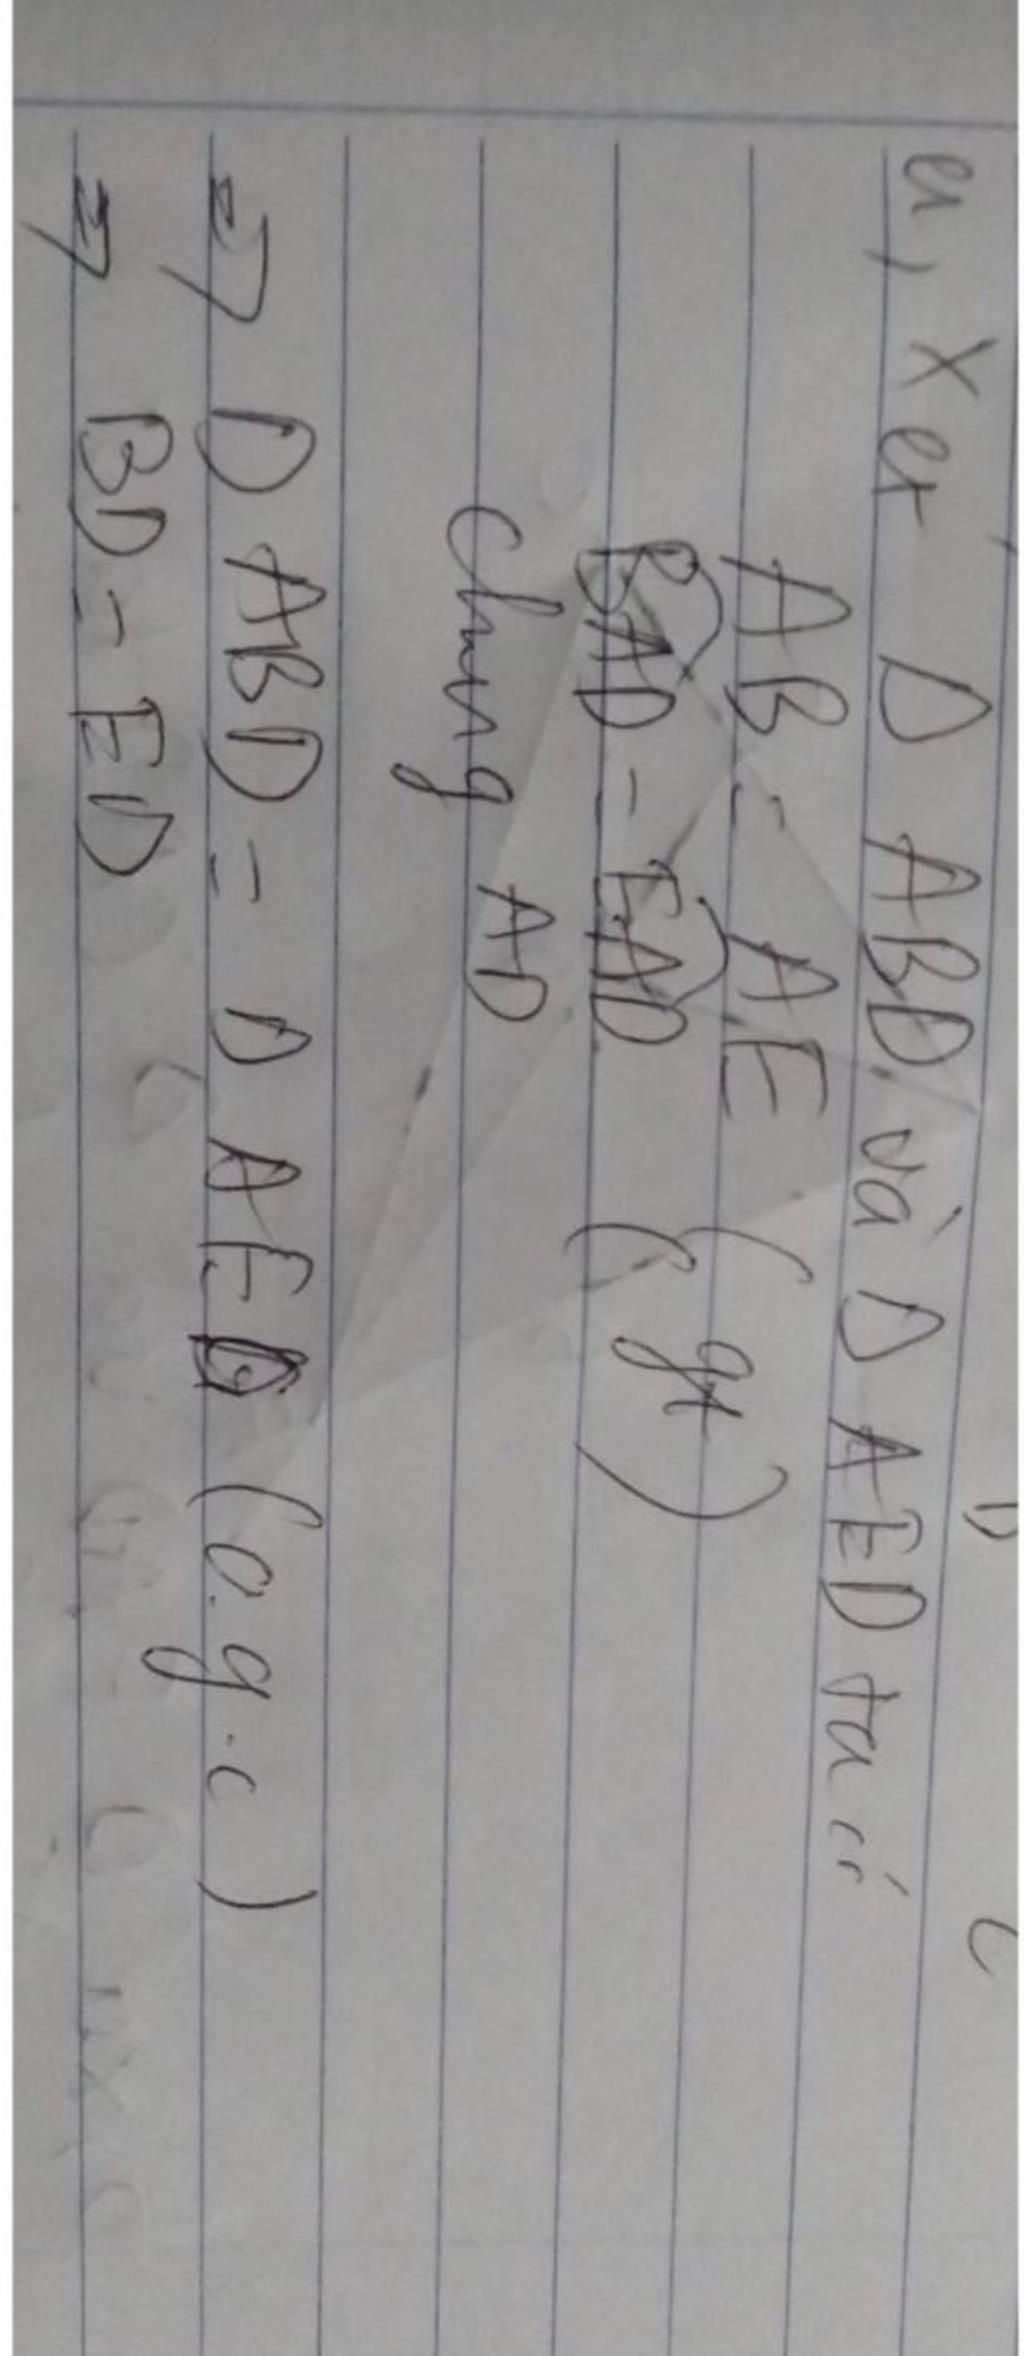 a, Xét Δ ABD và Δ AED ta có
AB = AE (gt)
BAD = EAD (
chung AD
=> Δ ABD = Δ AED (c.g.c)
=> BD = ED